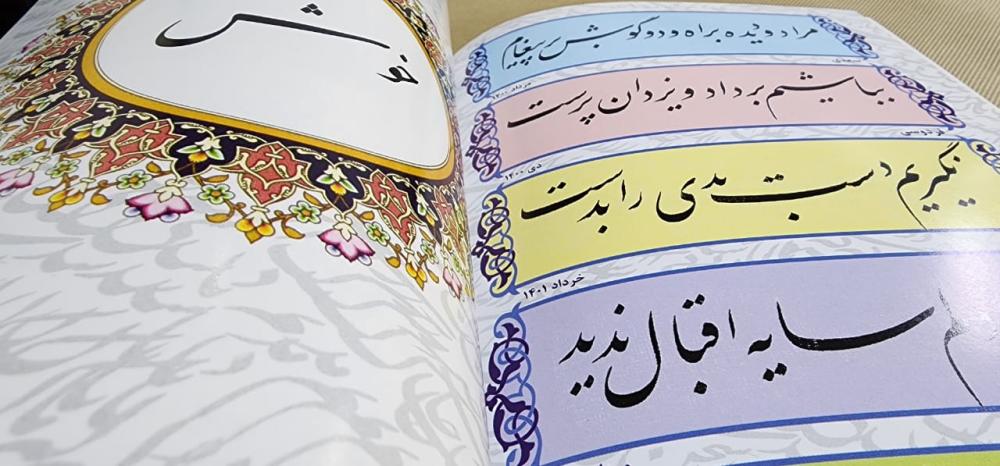 خوش
مرا دو دیده به راه و دو گوش بر پیغام
سعدی
مرداد ۱۴۰۰
بباشیم بر داد و یزدان پرست
فردوسی
دی ۱۴۰۰
نگیریم دست بدی را بدست
خرداد ۱۴۰۱
سایه اقبال ندید